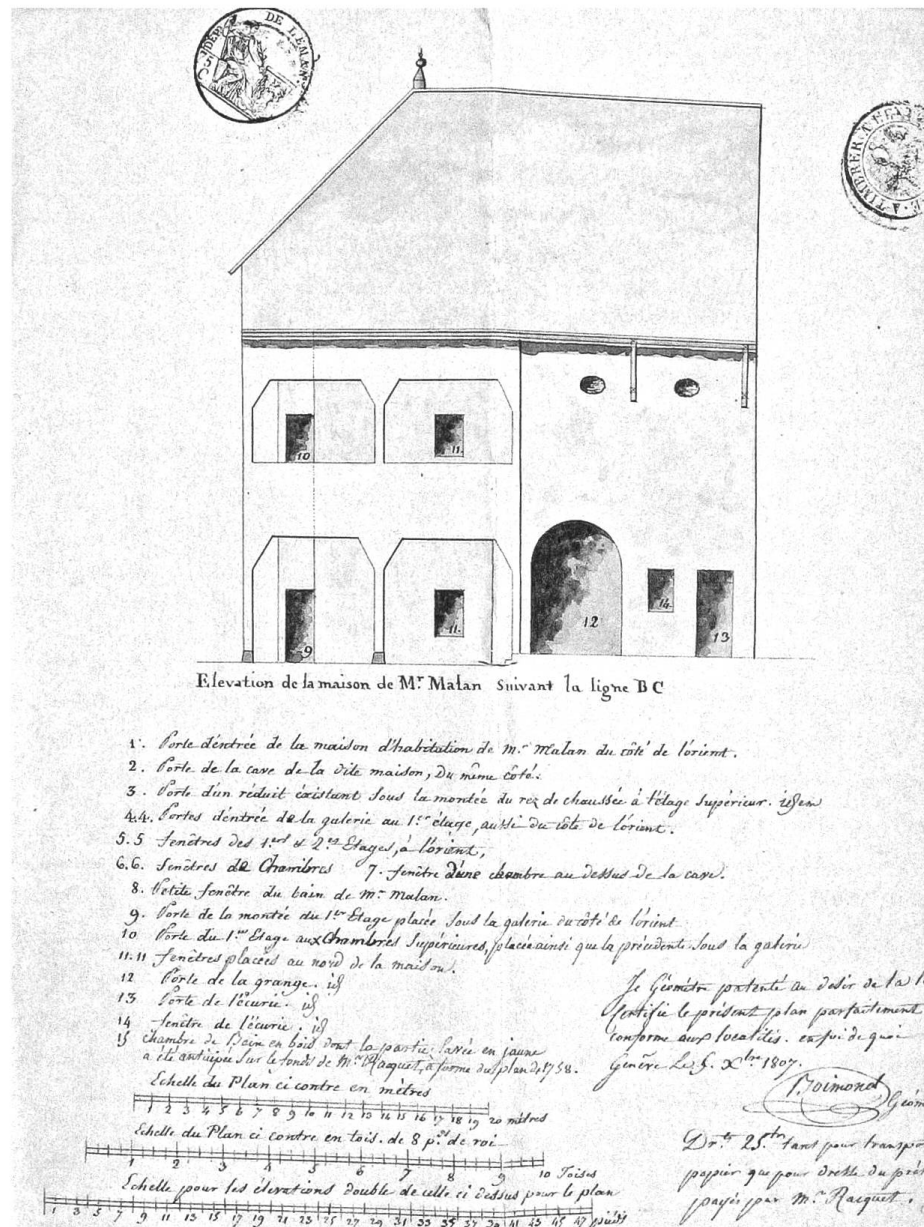 DE LEMAN
A TIMBRER A
10
11.
9
11.
12
14.
13
Elevation de la maison de Mr. Malan Suivant la ligne BC
1. Porte d'entrée de la maison d'habitation de mr. malan du côté de l'orient.
2. Porte de la cave de la dite maison, Du même côté.
3. Porte d'un réduit existant sous la montée du rez de chaussée à l'étage supérieur. idem
4.4. Portes d'entrée de la galerie au 1er. étage, aussi du côté de l'orient.
5.5 fenêtres des 1ers & 2es Etages, à l'orient,
6.6. fenêtres de Chambres 7. fenêtre d'une chambre au dessus de la cave.
8. Petite fenêtre du bain de mr. malan.
9. Porte de la montée du 1er Etage placée sous la galerie du côté de l'orient
10 Porte du 1er Etage aux Chambres Supérieures, placée ainsi que la précédente sous la galerie
11.11 fenêtres placées au nord de la maison.
12 Porte de la grange. id
13 Porte de l'écurie. id
14 fenêtre de l'écurie. id
15 chambre de Bain en bois dont la partie lavée en jaune
a été anticipée sur le fonds de Mr. Racquet, à forme du plan de 1758.
Echelle du Plan ci contre en mètres
1 2 3 4 5 6 7 8 9 10 11 12 13 14 15 16 17 18 19 20 mètres
Echelle du Plan ci contre en tois. de 8 pds. de roi
1 2 3 4 5 6 7 8 9 10 Toises
Echelle pour les élévations double de celle ci dessus pour le plan
1 3 5 7 9 11 13 15 17 19 21 23 25 27 29 31 33 35 37 39 41 43 45 47 pieds
Je Géomètre patenté au desir de la
Certifie le présent plan parfaitement
conforme aux localités. en foi de quoi
Genève Le 5. Xbre 1807.
Géom
25 tant pour
papier que pour du
payés par mr. Racquet.